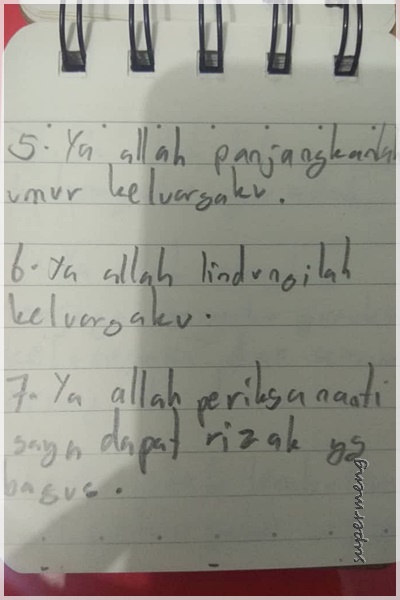 5. Ya allah panjangkanlah
umur keluargaku.
6. Ya allah lindungilah
keluargaku.
7. Ya allah periksa nanti
saya dapat rizak yg
bagus.
supermeng